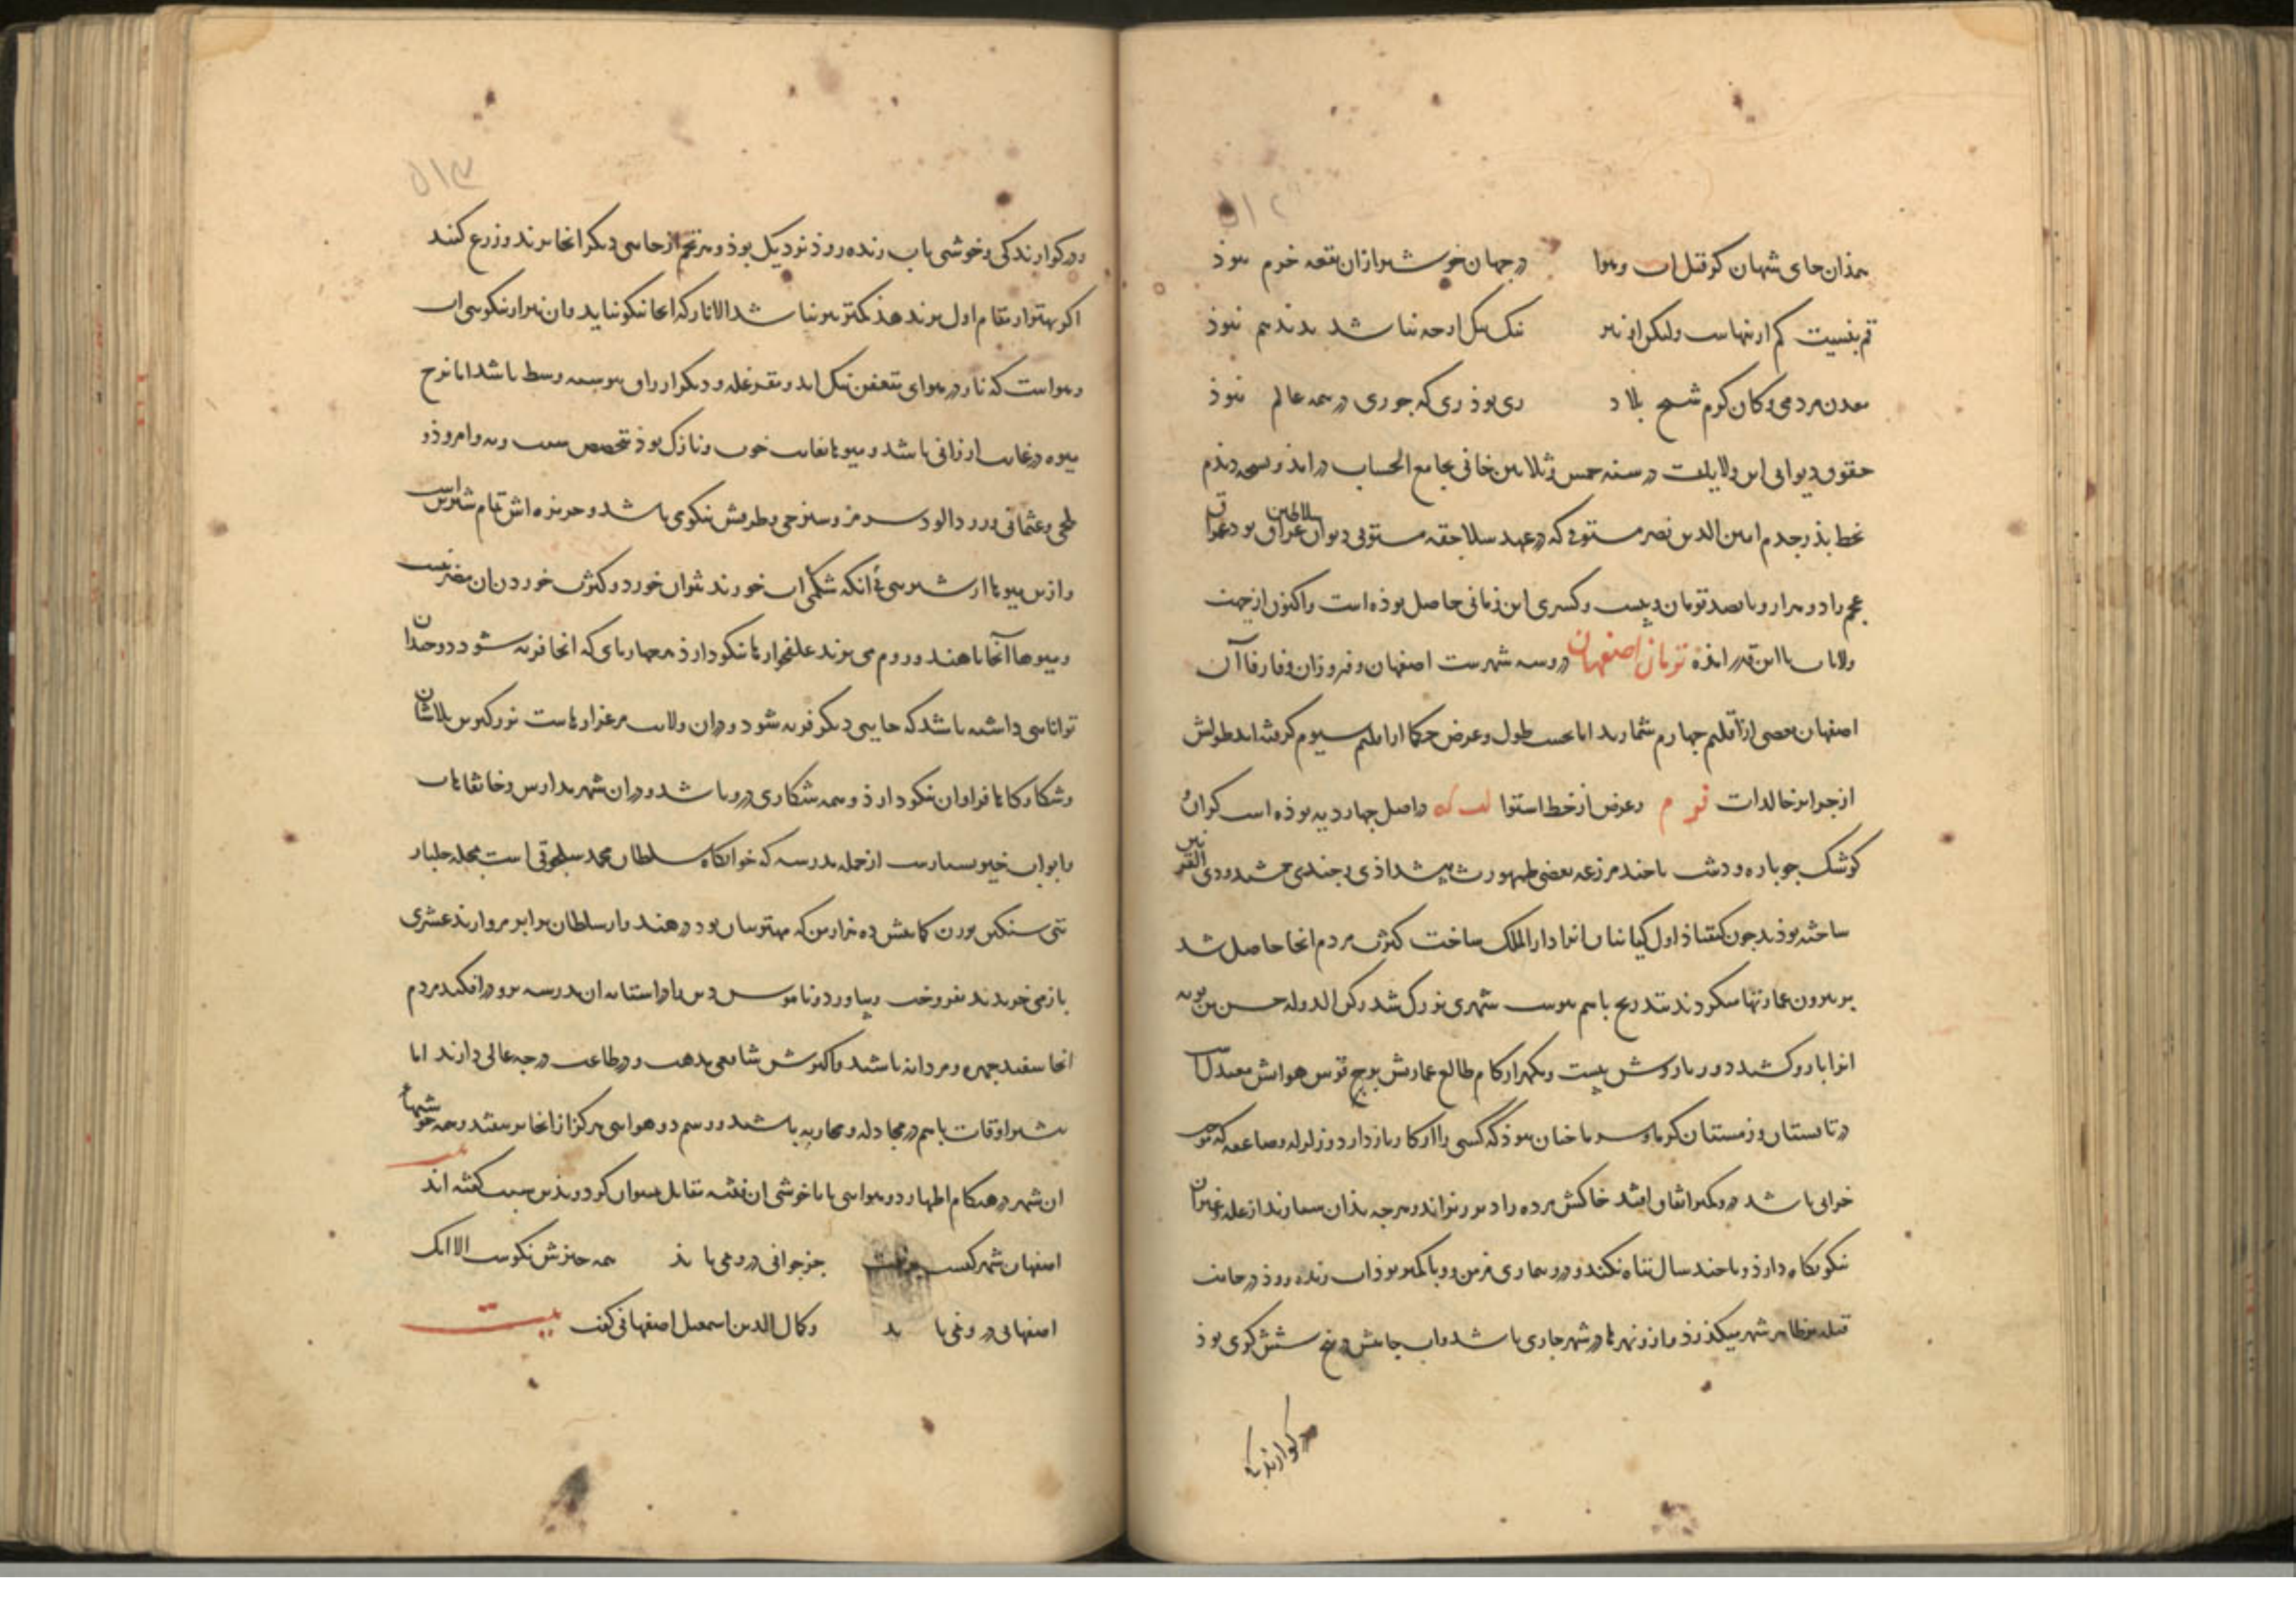 ۵۱۲
همذان جای شهان کز قبل اب و هوا در جهان خوشتر ازان بقعه خرم نبوذ
قم بنسبت کم ازینهاست ولیکن او نیز نیک نیک ارچه نباشد بد بد هم نبوذ
معدن مردمی و کان کرم شیخ بلاد ری بوذ ری که جو ری در همه عالم نبوذ
حقوق دیوانی این ولایات در سنه خمس و ثلاثین خانی بجامع الحساب در امذ و نسخه دیذم
بخط پذر جدم امین الدین نصر مستوفی که در عهد سلاجقه مستوفی دیوان سلاطین عراق بود عراق
عجم را دو هزار و پانصد تومان و بیست و کسری این زمانی حاصل بوذه است و اکنون از جهت
ولایات با این قدر امذه تومان اصفهان دروسه شهرست اصفهان و فیروزان و فارفاآن
اصفهان بعضی از اقلیم چهارم شمارند اما بحسب طول و عرض حکما از اقلیم سیوم کرفته اند طولش
از جزایر خالدات فو م و عرض از خط استوا لب که در اصل چهار دیه بوذه است کران و
کوشک جوباره و دشت با چند مزرعه بعضی طهمورث پیشداذی و چندی جمشید و ذی القرنین
ساخته بوذند جون کیقباذ اول کیانیان انرا دار الملک ساخت کثرت مردم انجا حاصل شد
بر بیرون عمارتها میکردند بتدریج باهم پیوست شهری بزرک شد رکن الدوله حسن بن بویه
انرا بارو کشید دور باروش بیست و یکهزار کام طالع عمارتش برج قوس هوایش معتدلست
در تابستان و زمستان کرما و سرما چنان نبوذ که کسی را از کار باز دارد و زلزله و صاعقه که موجب
خرابی باشد درو کمتر اتفاق افتد خاکش مرده را دیر ریزاند و هرچه بذان سپارند از غله و غیر ان
نیکو نکاه دارذ و تا چند سال تباه نکند و درو بیماری مزمن و وبا کمتر بوذ اب زنده روذ در جانب
قبله بظاهر شهر میکذرذ و ازو نهرها در شهر جاری باشد و اب چاهش در پنج شش کزی بوذ
در کوارندکی
۵۱۳
در کوارندکی و خوشی باب زنده روذ نزدیک بوذ و هر تخم از جایی دیکر انجا برند و زرع کنند
اکر بهتر از مقام اول بر ندهذ کمتر نیز نباشد الا انار که انجا نیکو نیاید و ان نیز از نیکویی اب
و هواست که نار در هوای متعفن نیک اید و نقره غله و دیکر ارزاق پیوسته وسط باشد اما نرخ
میوه در غایت ارزانی باشد و میوها بغایت خوب و نازک بوذ بتخصیص سیب و به و امروذ و
بلخی و عثمانی و زردالو سرمز و سنرجی و طرمش نیکو می باشد و خربزه اش تمام شیرین است
و ازین میوها از شیرینی بی انکه شکمی اب خورند نتوان خورد و کثرت خوردن ان مضر نیست
و میوها آنجا تا هند و روم می برند علفخوارها نیکو دارذ و هر چهارپای که انجا فربه شود دو چندان
توانایی داشته باشد که جایی دیکر فربه شود و دران ولایت مرغزارهاست بزرکترین بلاشان
و شکارکاها فراوان نیکو دارذ و همه شکاری درو باشد و دران شهر مدارس و خانقاهات
و ابواب خیر بسیارست از جمله مدرسه که خوابکاه سلطان محمد سلجوقی است بمحله جلبار
بتی سنکین بوزن کمابیش ده هزار من که مهتر بتان بود در هند و از سلطان برابر مروارید عشری
باز می خریدند نفروخت و بیاورد و ناموس دین را در استانه ان مدرسه برو در افکند مردم
انجا سفید چهره و مردانه باشند و اکثرش شافعی مذهب و در طاعت درجه عالی دارند اما
بیشتر اوقات باهم در مجادله و محاربه باشند و رسم دو هوایی هرکز از انجا بر نیفتد و همه خوشیها
ان شهر در هنکام اظهار دو هوایی با ناخوشی ان فتنه مقابل نمیتوان کرد و بذین سبب کفته اند بیت
اصفهان شهر کیست جز جوانی درو نمی باید همه چیزش نکوست الا انک
اصفهانی درو نمی باید و کمال الدین اسمعیل اصفهانی کفت بیت